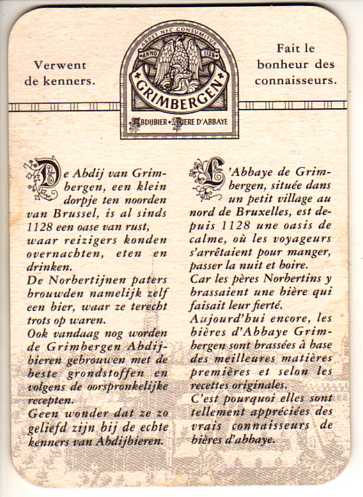 Verwent
de kenners.
ARDET NEC CONSUMITUR
ANNO 1128
GRIMBERGEN
ABDIJBIER • BIERE D'ABBAYE
Fait le
bonheur des
connaisseurs.
De Abdij van Grim-
bergen, een klein
dorpje ten noorden
van Brussel, is al sinds
1128 een oase van rust,
waar reizigers konden
overnachten, eten en
drinken.
De Norbertijnen paters
brouwden namelijk zelf
een bier, waar ze terecht
trots op waren.
Ook vandaag nog worden
de Grimbergen Abdij-
bieren gebrouwen met de
beste grondstoffen en
volgens de oorspronkelijke
recepten.
Geen wonder dat ze zo
geliefd zijn bij de echte
kenners van Abdijbieren.
L'Abbaye de Grim-
bergen, située dans
un petit village au
nord de Bruxelles, est de-
puis 1128 une oasis de
calme, où les voyageurs
s'arrêtaient pour manger,
passer la nuit et boire.
Car les pères Norbertins y
brassaient une bière qui
faisait leur fierté.
Aujourd'hui encore, les
bières d'Abbaye Grim-
bergen sont brassées à base
des meilleures matières
premières et selon les
recettes originales.
C'est pourquoi elles sont
tellement appréciées des
vrais connaisseurs de
bières d'abbaye.